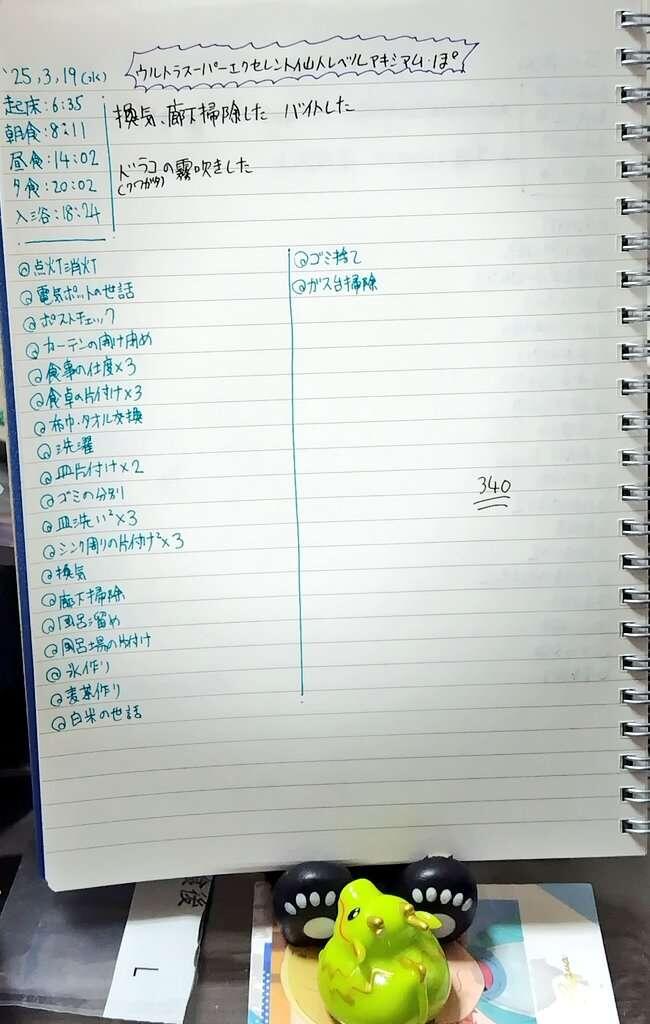 '25,3,19(水)
ウルトラスーパーエクセレント仙人レベルアキシアム・ぽ
起床:6:35
朝食:8:11
昼食:14:02
夕食:20:02
入浴:18:24
換気、廊下掃除した バイトした
ドラコの霧吹きした
(クワガタ)
点灯消灯
電気ポットの世話
ポストチェック
カーテンの開け閉め
食事の仕度×3
食卓の片付け×3
布巾・タオル交換
洗濯
皿片付け×2
ゴミの分別
皿洗い²×3
シンク周りの片付け²×3
換気
廊下掃除
風呂溜め
風呂場の片付け
氷作り
麦茶作り
白米の世話
ゴミ捨て
ガス台掃除
340
食後
L